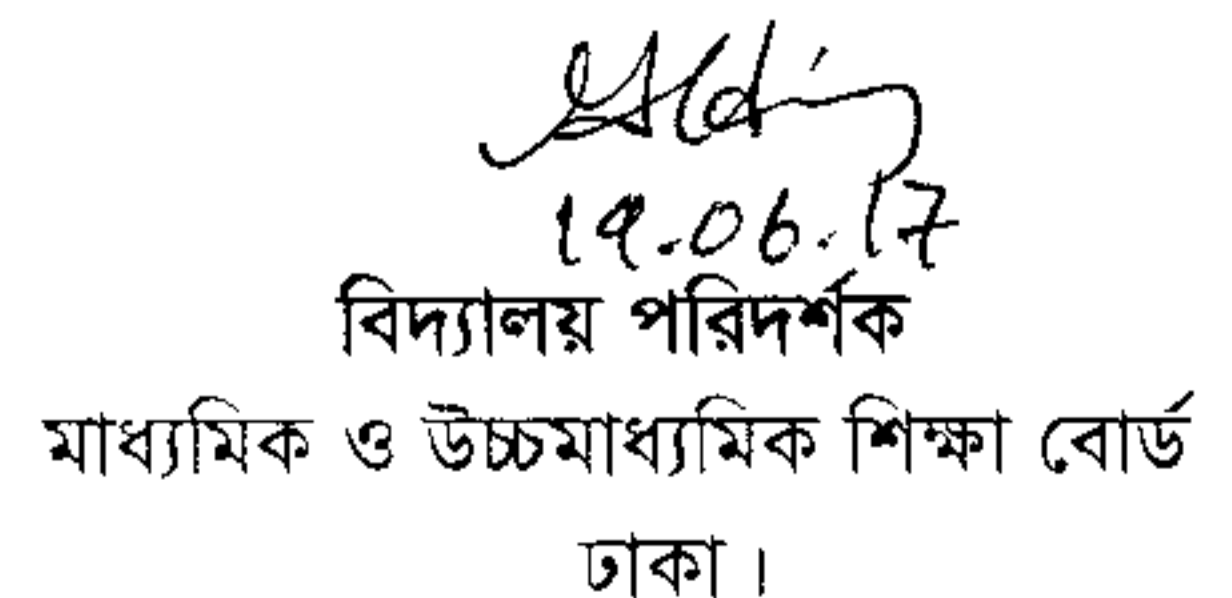 19.06.17
বিদ্যালয় পরিদর্শক
মাধ্যমিক ও উচ্চমাধ্যমিক শিক্ষা বোর্ড
ঢাকা।